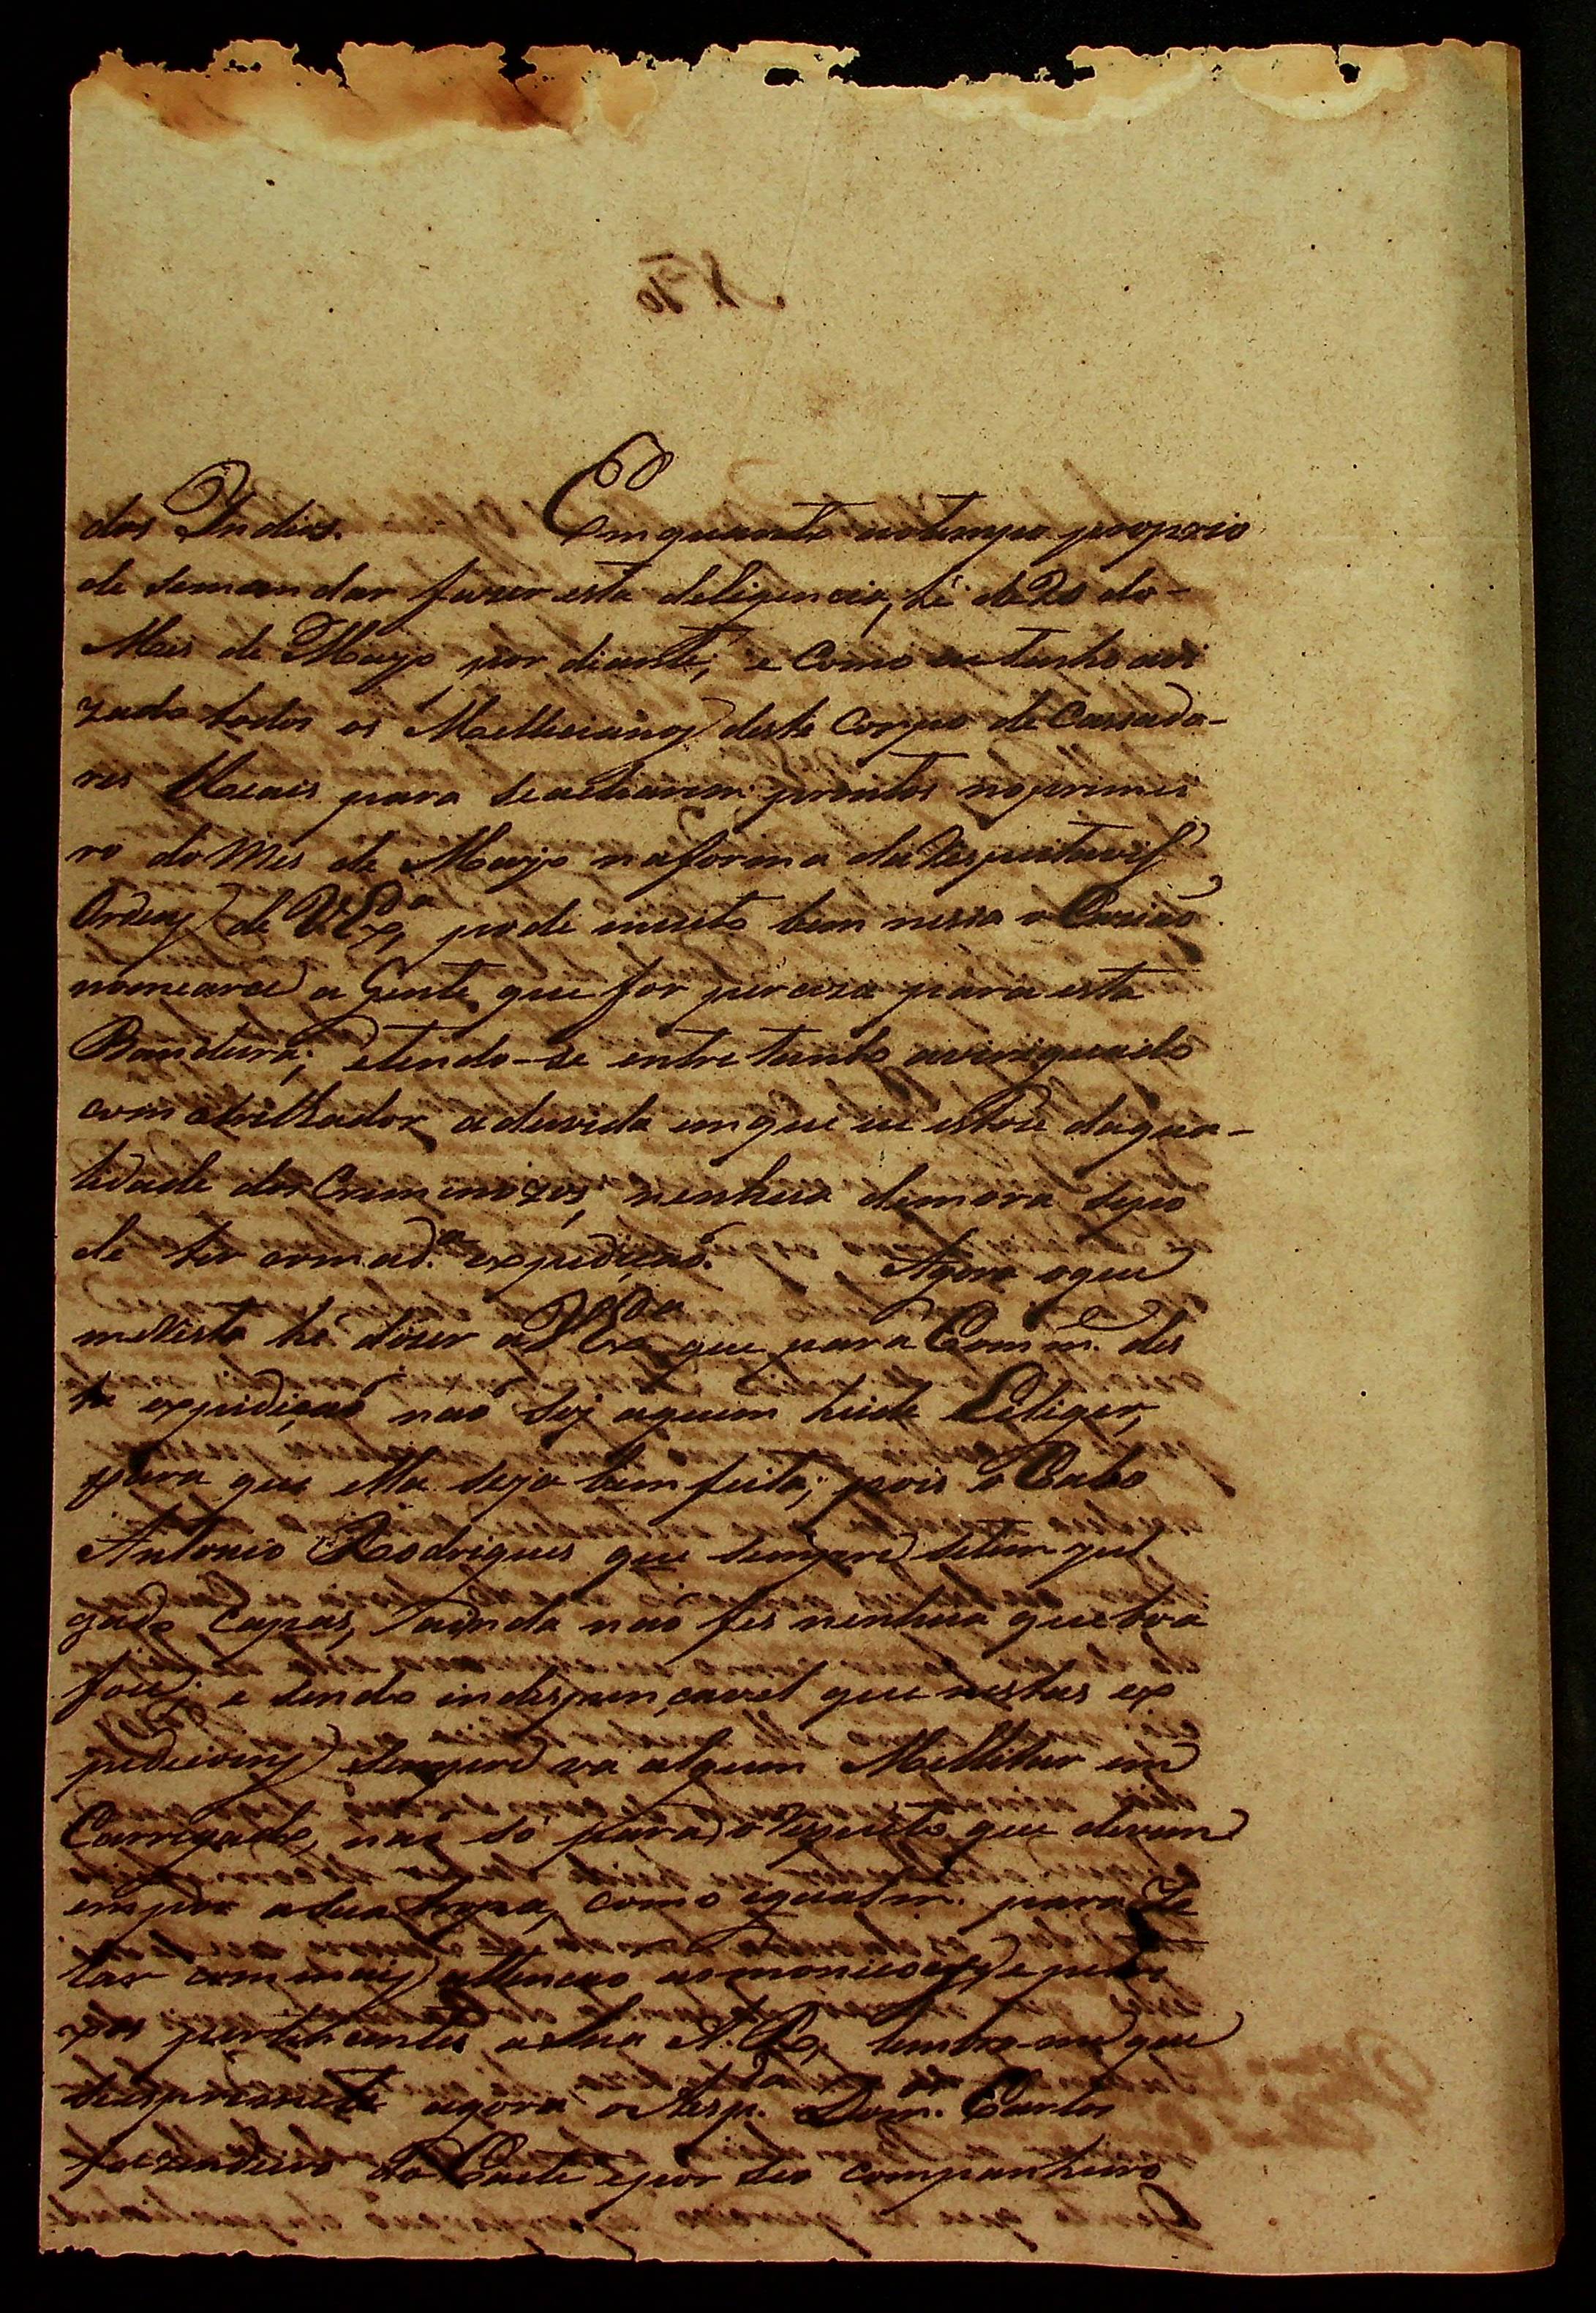 dos Indios. Emquanto aotempo proprio
de semandar fazer esta deligencia, hé de 20 do-
Mes de Março por diante; e Como eu tenho avi
zado todos os Mellicianos deste Corpo de Cassado-
res para seacharem prontos noprimei
ro do Mes de Março naforma da Respeitavel
Ordem de V Exa, pode muito bem nessa o Cazião
nomearce a Gente que for perciza para esta
Bandeira; etendo-se entre tanto averiguado
com a duvida emque eu estou daqua-
lidade dos Criminozos, nenhua demora
de ter comada. expedição. Agora oque
meResta hé dizer a V Exa que para Comme. des
ta expedição não Sei aquem heide Eleger,
para que ella seja bem feita; pois o Cabo
Antonio Rodrigues que sempre setem jul
gado Capas, ainda não fes nenhua que boa
foce; e sendo indespençavel que nestas ex
pedicoens sempre va algum Mellitar em
Carregado, não só para o Respeito que devem
impor asua tropa, como igualme. para Ze
lar com mais attencão asmonicoens e
xos pertencentes a Sua A. R., lembro-me que
agora o Dom. Carlos
fazendeiro do Cuité epor seo companheiro